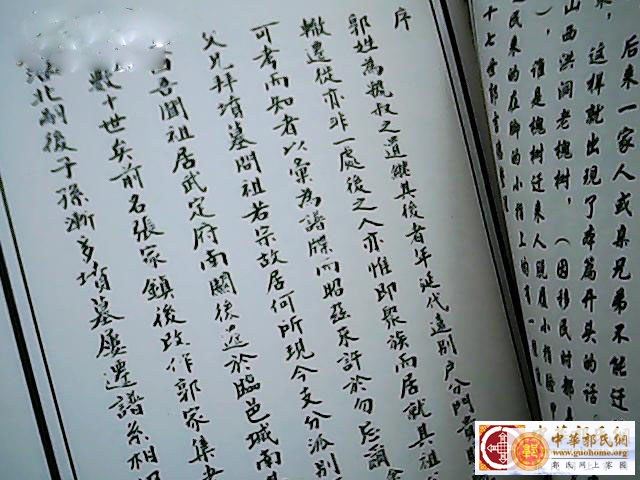 后来一家人或某兄弟不能迁
来，这样就出现了本篇开头的话
山西洪洞老槐树，（因移民时都
），谁是槐树迁来人脱履小指
民来的在脚的小指上的
序
郭姓為虢叔之遺繼其後者年延代遠別户分門
轍遷徙亦非一處後之人亦惟即聚族而居就其祖
可考而知者以彙為譜牒而昭茲來許於勿忘爾
父兄拜墳墓問祖若宗故居何所現今支分派別
吾聞祖居武定府南關後遷於臨邑城南
數十世矣前名張家鎮後改作郭家集
北嗣後子孫漸多墳墓屢遷譜系相
中華郭氏網
www.guohome.org
郭氏网上家園